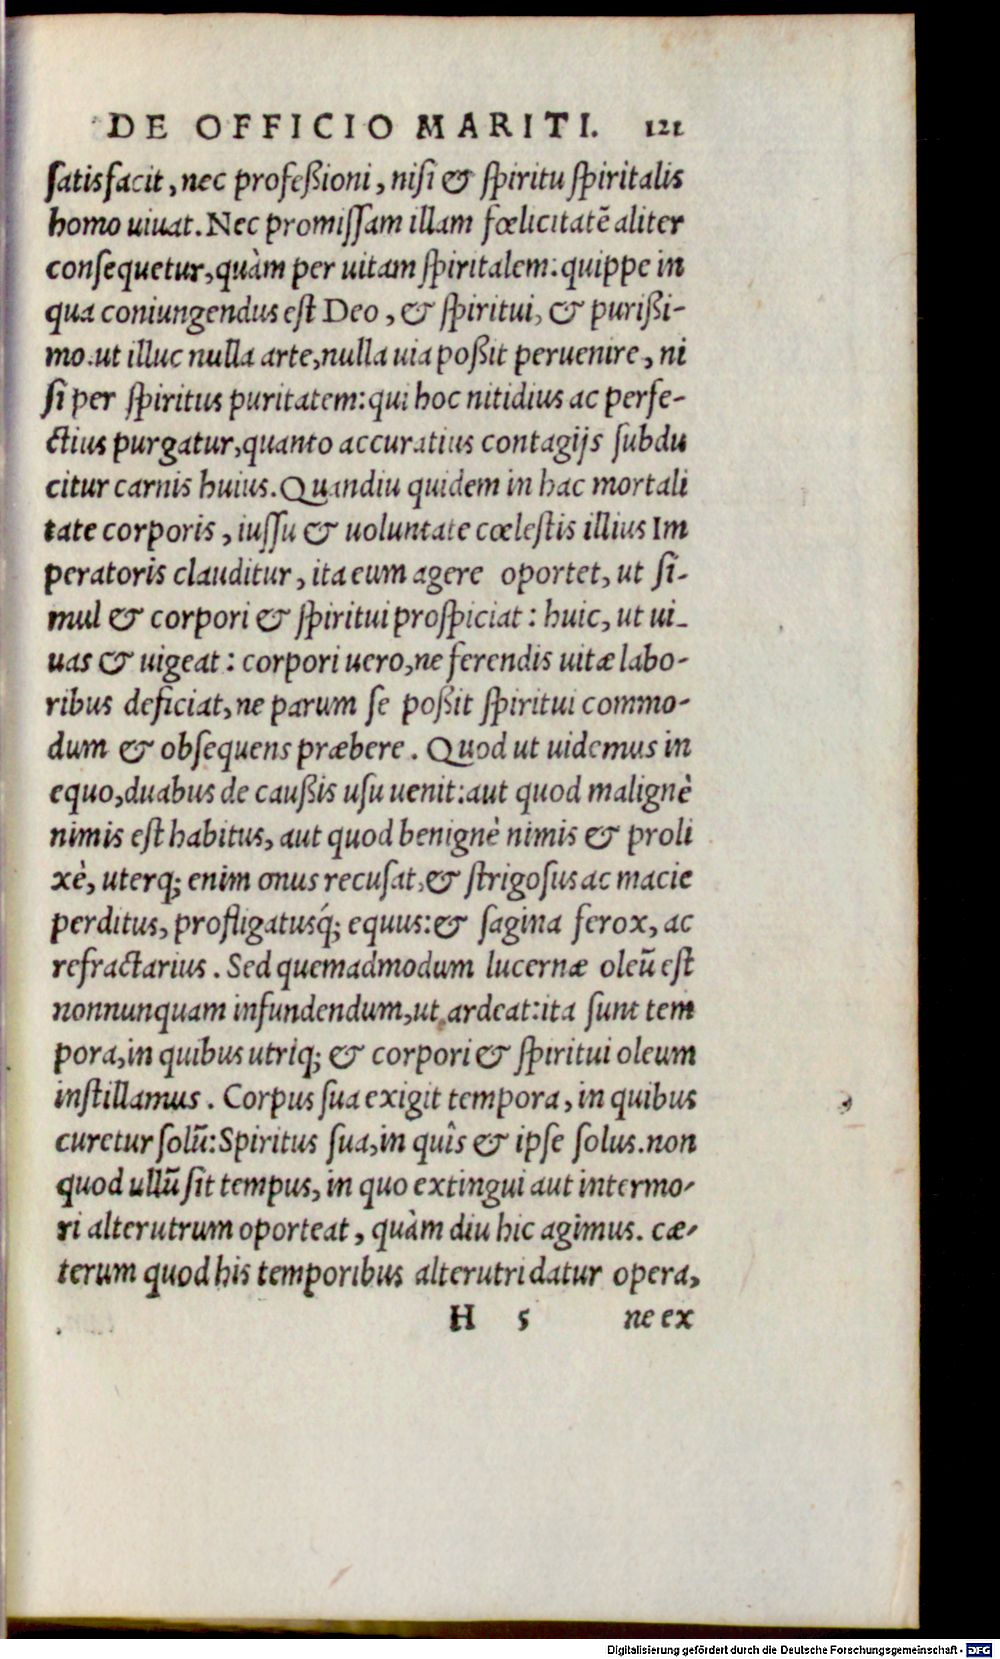 DE OFFICIO MARITI. 121
satisfacit, nec profeßioni, nisi & spiritu spiritalis
homo uiuat. Nec promissam illam fœlicitatē aliter
consequetur, quàm per uitam spiritalem: quippe in
qua coniungendus est Deo, & spiritui, & purißi-
mo. ut illuc nulla arte, nulla uia poßit peruenire, ni
si per spiritus puritatem: qui hoc nitidius ac perfe-
ctius purgatur, quanto accuratius contagijs subdu
citur carnis huius. Quandiu quidem in hac mortali
tate corporis, iussu & uoluntate cœlestis illius Im
peratoris clauditur, ita eum agere oportet, ut si-
mul & corpori & spiritui prospiciat: huic, ut ui-
uas & uigeat: corpori uero, ne ferendis uitæ labo-
ribus deficiat, ne parum se poßit spiritui commo-
dum & obsequens præbere. Quod ut uidemus in
equo, duabus de caußis usu uenit: aut quod malignè
nimis est habitus, aut quod benignè nimis & proli
xè, uterq; enim onus recusat, & strigosus ac macie
perditus, profligatusq́; equus: & sagina ferox, ac
refractarius. Sed quemadmodum lucernæ oleū est
nonnunquam infundendum, ut ardeat: ita sunt tem
pora, in quibus utriq; & corpori & spiritui oleum
instillamus. Corpus sua exigit tempora, in quibus
curetur solū: Spiritus sua, in quîs & ipse solus. non
quod ullū sit tempus, in quo extingui aut intermo-
ri alterutrum oporteat, quàm diu hic agimus. cæ-
terum quod his temporibus alterutri datur opera,
H 5 ne ex
Digitalisierung gefördert durch die Deutsche Forschungsgemeinschaft - DFG